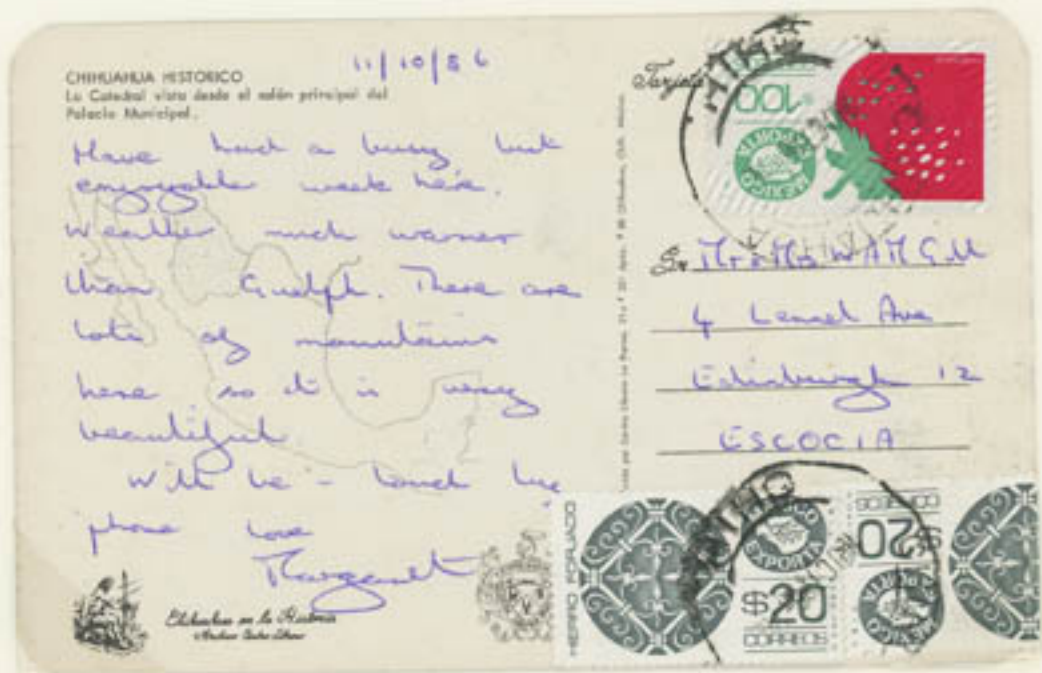 CHIHUAHUA HISTORICO
La Catedral vista desde el salón principal del
Palacio Municipal.
11/10/86
Have had a busy but
enjoyable week here.
Weather much warmer
than Guelph. There are
lots of mountains
here so it is very
beautiful.
Will be in touch by
phone love
Margaret
Chihuahua en la Historia
Tarjeta
100
MEXICO EXPORTA
Sr. Mr & Mrs
4 Ave
Edinburgh 12
ESCOCIA
HIERRO FORJADO
MEXICO EXPORTA
$20
CORREOS
$20
CORREOS
MEXICO EXPORTA